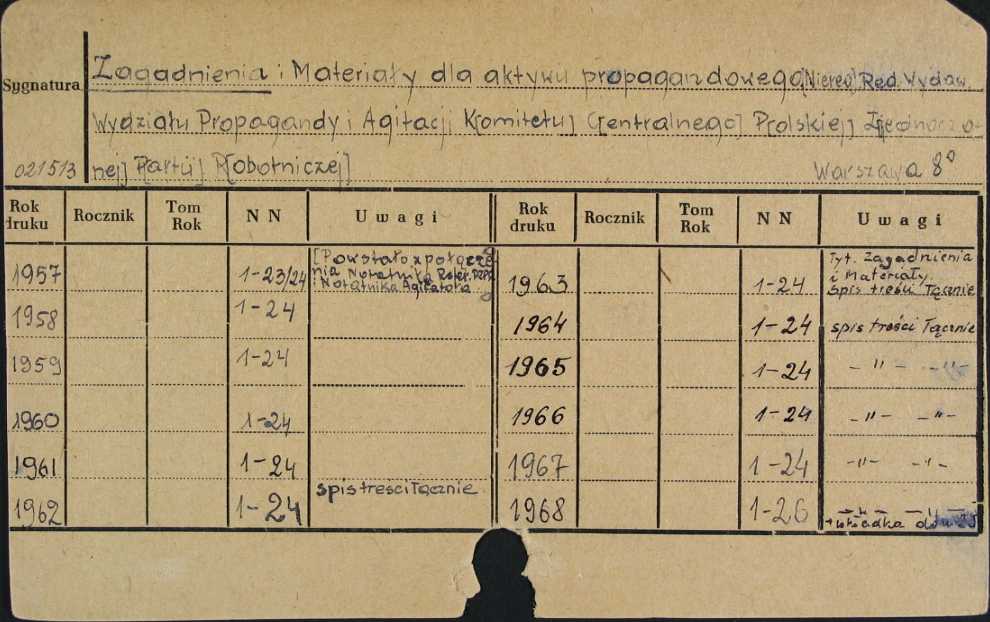 Zagadnienia i Materiały dla aktywu propagandowego [Niereg] Red. Wydaw.
Sygnatura
Wydziału Propagandy i Agitacji K[omitetu] C[entralnego] P[olskiej] Z[jednoczo-
021513 nej] P[artii] R[obotniczej] Warszawa 8°
Rok druku Rocznik Tom Rok NN Uwagi Rok druku Rocznik Tom Rok NN Uwagi
1957 1-23/24 [Powstało z połącze-
nia Notatnika Refer. PZPR
i Notatnika Agitatora
1963 1-24 Tyt. Zagadnienia
i Materiały.
spis treści łącznie
1958 1-24
1964 1-24 spis treści łącznie
1959 1-24
1965 1-24 - " - - " -
1960 1-24
1966 1-24 - " - - " -
1961 1-24
1967 1-24 - " - - " -
1962 1-24 spis tresci łącznie
1968 1-26 - " - - " -
+ wkładka do